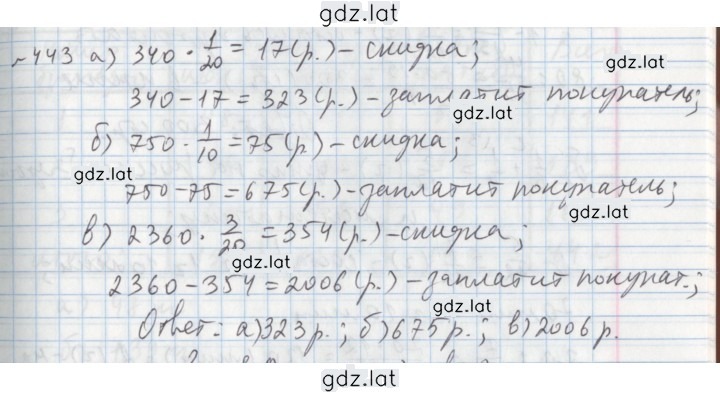 gdz.lat
№443 а) 340 · 1/20 = 17(р.) – скидка;
gdz.lat
340 – 17 = 323(р.) – заплатит покупатель;
б) 750 · 1/10 = 75(р.) – скидка;
gdz.lat
750 – 75 = 675(р.) – заплатит покупатель;
gdz.lat
в) 2360 · 3/20 = 354(р.) – скидка;
gdz.lat
2360 – 354 = 2006(р.) – заплатит покупат.;
gdz.lat
Ответ: а) 323 р.; б) 675 р.; в) 2006 р.
gdz.lat